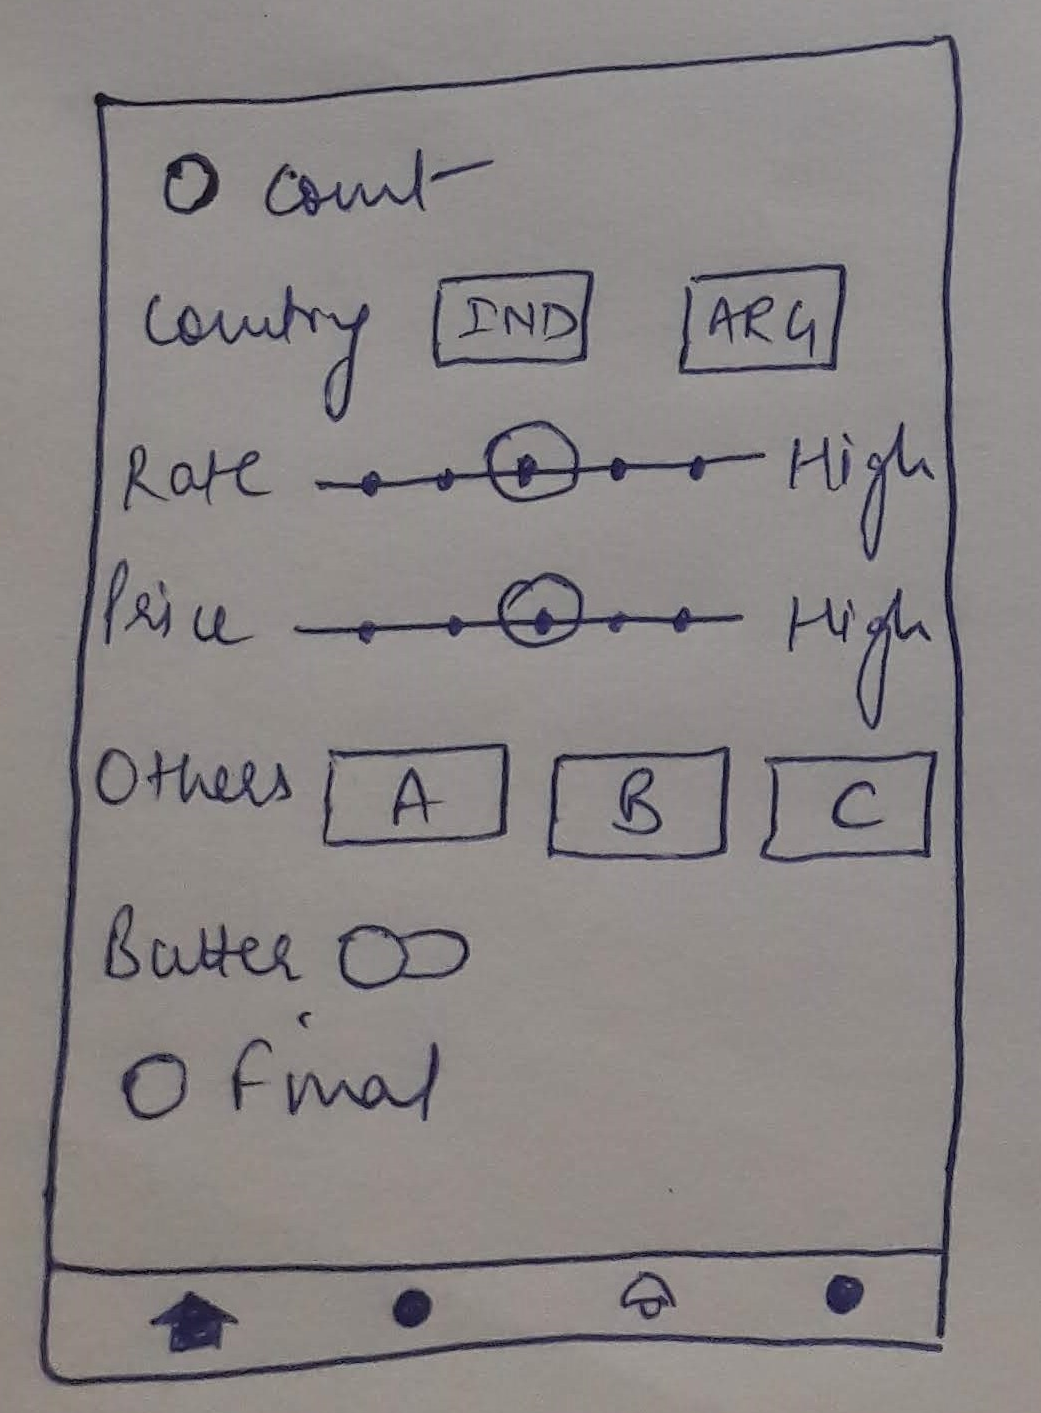 Count
Country IND ARG
Rate High
Price High
Others A B C
Butter
Final